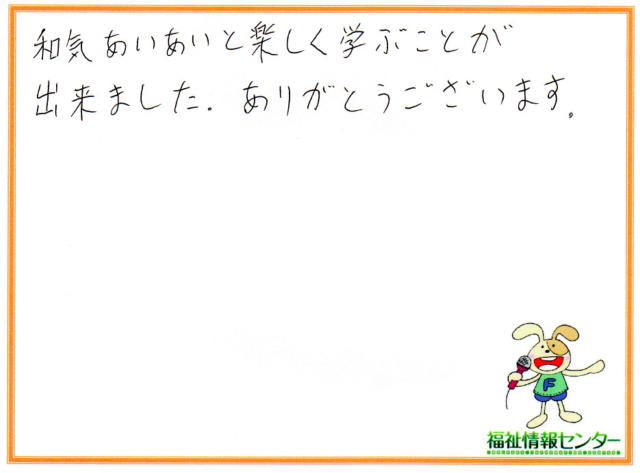 和気あいあいと楽しく学ぶことが
出来ました. ありがとうございます。
F
福祉情報センター